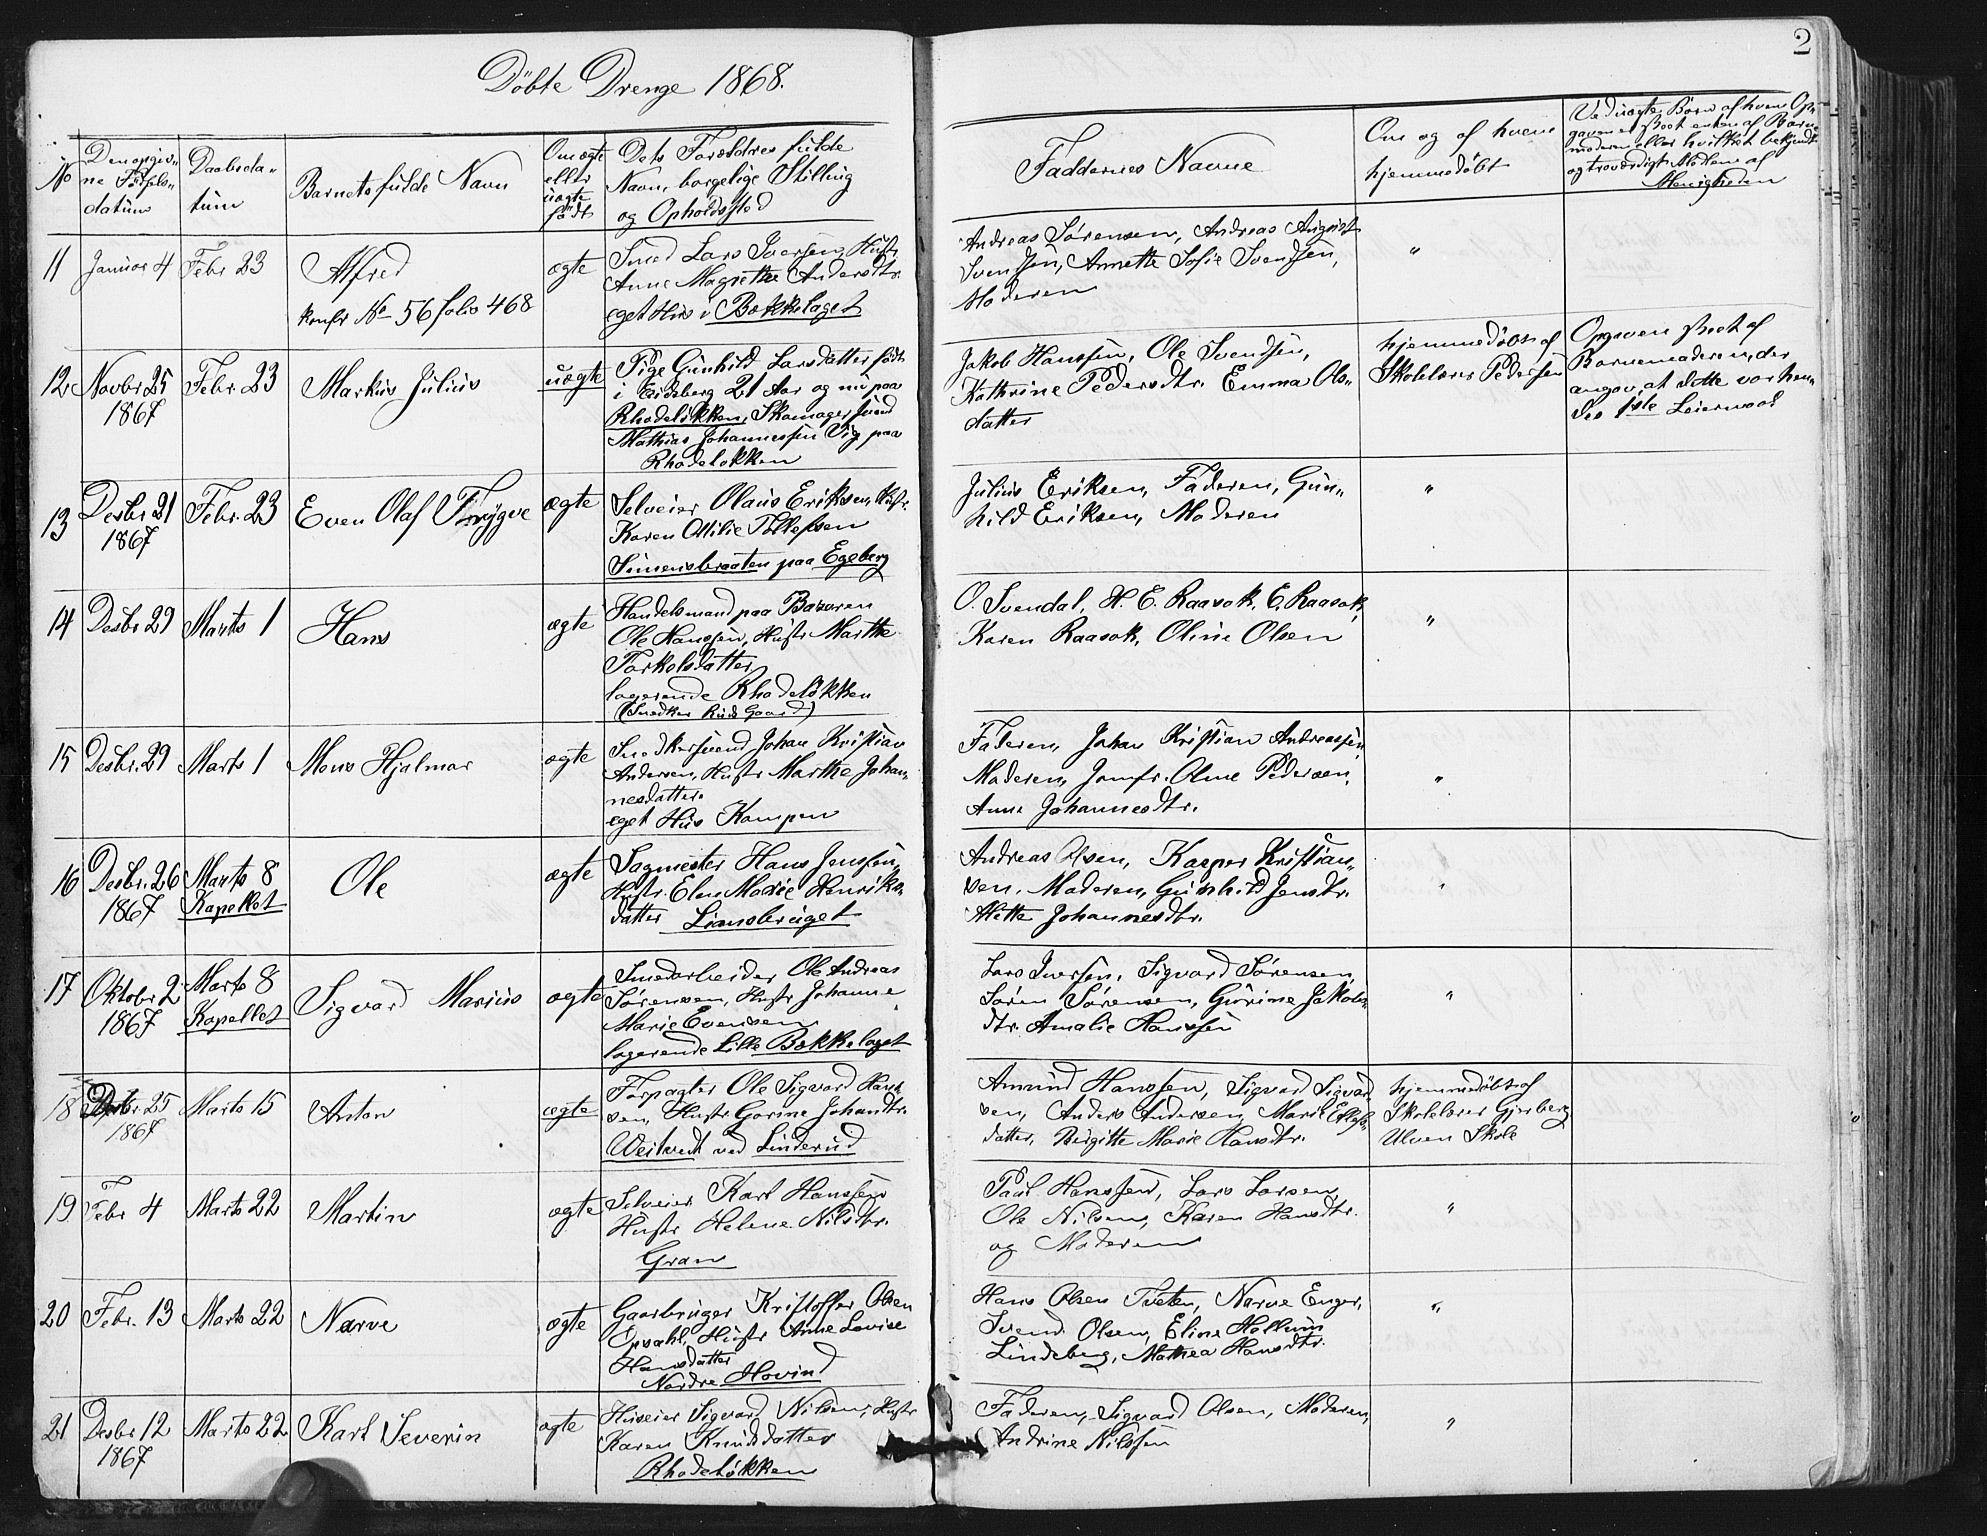 Döbte Drenge 1868.
2
No
Den opgiv-
ne Fødsels-
datum
Daabsda-
tum
Barnets fulde Navn
Om ægte
eller
uægte
født
Dets Forældres fulde
Navn, borgelige Stilling
og Opholdssted
Faddernes Navne
Om og af hvem
hjemmedøbt
Ved uægte Børn af hvem Op-
gaven er skeet enten af Barne-
moderen eller hvilket bekjendt
og troværdigt Medlem af
Menigheden
11
Januar 4
Febr. 23
Alfred
konfr No 56 folio 468
ægte
Smed Lars Iversen, Hustr.
Anne Magrethe Andersdtr.
eget Hus i Bækkelaget
Andreas Sørensen, Andreas August
Svendsen, Annette Sofie Svendsen,
Moderen
"
12
Novbr 25
1867
Febr. 23
Markus Julius
uægte
Pige Gunhild Larsdatter født
i Eidsberg 21 Aar og nu paa
Rhodeløkken, Skomagersvend
Mathias Johannessen Vig paa
Rhodeløkken
Jakob Hanssen, Ole Svendsen,
Kathrine Pedersdtr. Emma Ols-
datter
hjemmedøbt af
Skolelærer Pedersen
Opgaven skeet af
Barnemoderen, der
angav, at dette var hen-
des 1ste Leiermaal
13
Desbr. 21
1867
Febr. 23
Even Olaf Trygve
ægte
Selveier Olaus Eriksen, Hustr.
Karen Otilie Tollefsen
Simensbraaten paa Egeberg
Julius Eriksen, Faderen, Gun-
hild Eriksen, Moderen
"
14
Desbr 29
Marts 1
Hans
ægte
Handelsmand paa Bazaren
Ole Hanssen, Hustr Marthe
Torkelsdatter
logerende Rhodeløkken
(Snedker Ruds Gaard)
O. Svendal, H. E. Raasok, E. Raasok,
Karen Raasok, Oline Olsen
"
15
Desbr. 29
Marts 1
Mons Hjalmar
ægte
Snedkersvend Johan Kristian
Andersen, Hustr Marthe Johan-
nesdatter.
eget Hus Kampen
Faderen, Johan Kristian Andreassen
Moderen, Jomfr. Oline Pedersen,
Anne Johannesdtr.
"
16
Desbr. 26
1867
Marts 8
Kapellet
Ole
ægte
Sagmester Hans Jenssen,
Hustr. Elen Marie Henriks-
datter Liansbruget
Andreas Olsen, Kasper Kristian-
sen, Moderen, Gunhild Jensdtr.
Mette Johannesdtr.
"
17
Oktobr 2
1867
Marts 8
Kapellet
Sigvard Marius
ægte
Smedarbeider Ole Andreas
Sørensen, Hustr Johanne
Marie Evensen
logerende Lille Bækkelaget
Lars Iversen, Sigvard Sørensen,
Søren Sørensen, Gurine Jakobs-
dtr. Amalie Hanssen
"
18
Desbr 25
1867
Marts 15
Anton
ægte
Forpagter Ole Sigvard Hans-
sen, Hustr Gorine Johansdtr.
Weitvedt ved Linderud
Amund Hanssen, Sigvard Sigvard-
sen, Anders Andersen, Marie Ellefs-
datter, Birgitte Marie Hansdtr.
hjemmedøbt af
Skolelærer Gjerberg
Ulven Skole
19
Febr 4
Marts 22
Martin
ægte
Selveier Karl Hanssen
Hustr Helene Nilsdtr.
Gran
Paal Hanssen, Lars Larsen,
Ole Nilsen, Karen Hansdtr.
og Moderen
"
20
Febr. 13
Marts 22
Narve
ægte
Gaardbruger Kristoffer Olsen
Opsahl, Hustr Anne Lovise
Hansdatter
Nordre Hovind
Hans Olsen Tveten, Narve Enger,
Svend Olsen, Eline Hellum
Lindeberg, Mathea Hansdtr.
"
21
Desbr 12
1867
Marts 22
Karl Severin
ægte
Huseier Sigvard Nilsen, Hustr
Karen Knudsdatter
Rhodeløkken
Faderen, Sigvard Olsen, Moderen,
Andrine Nilssen
"